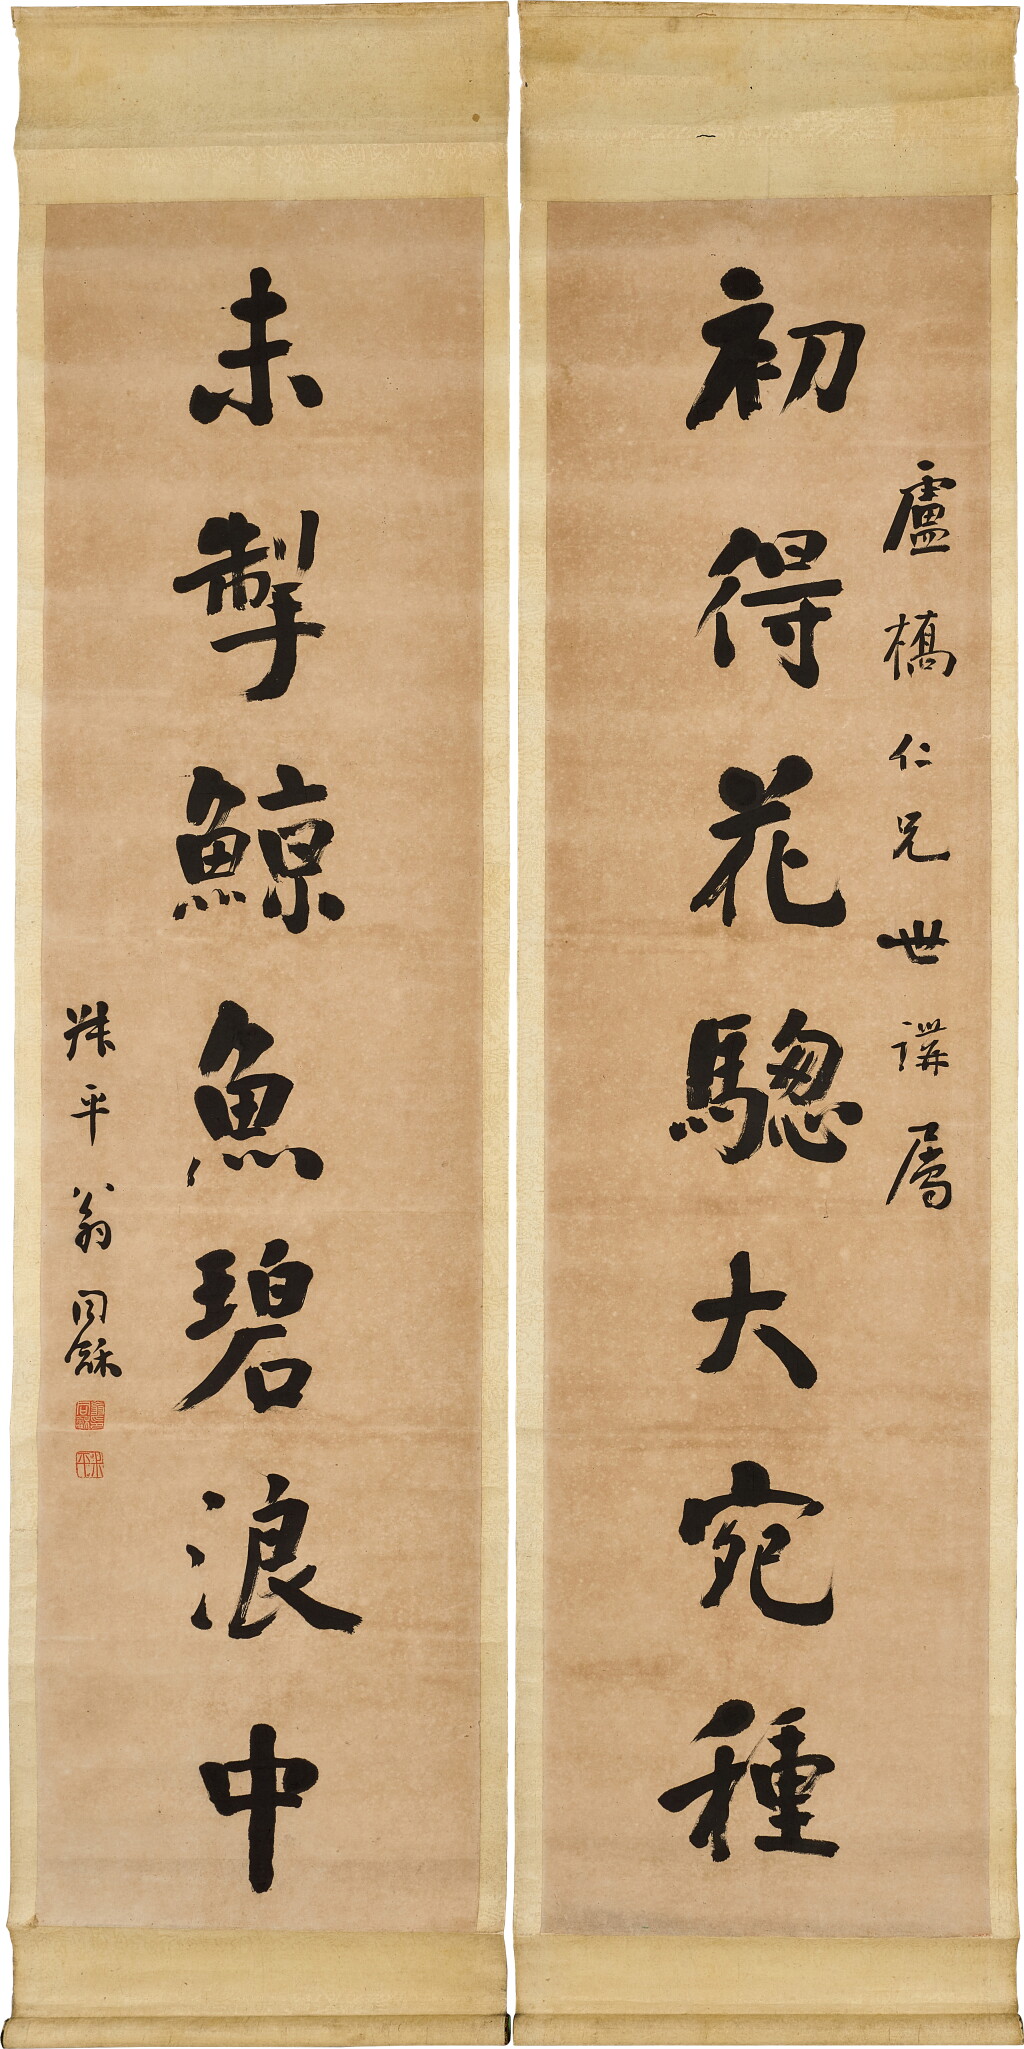 初得花驄大宛種
盧橋仁兄世講屬
未掣鯨魚碧浪中
叔平翁同龢